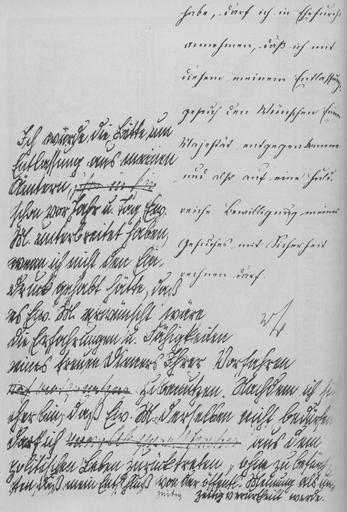 habe, darf ich in Ehrfurcht
annehmen, daß ich mit
diesem meinem Entlassungs
gesuch den Wünschen Eurer
Majestät entgegenkomme
und also auf eine huld-
reiche Bewilligung meines
Gesuches mit Sicherheit
rechnen darf.
Ich würde die Bitte um
Entlassung aus meinen
Ämtern,
schon vor Jahr u. Tag Ew.
M. unterbreitet haben,
wenn ich nicht den Ein-
druck gehabt hätte, daß
es Ew. M. erwünscht wäre
die Erfahrungen u. Fähigkeiten
eines treuen Dieners Ihrer Vorfahren
zu benutzen. Nachdem ich
sicher bin, daß Ew. M. derselben nicht bedürfen
darf ich aus dem
politischen Leben zurücktreten, ohne zu befürch-
ten, daß mein Entschluß von der öffentl. Meinung als un-
zeitig verurtheilt werde.